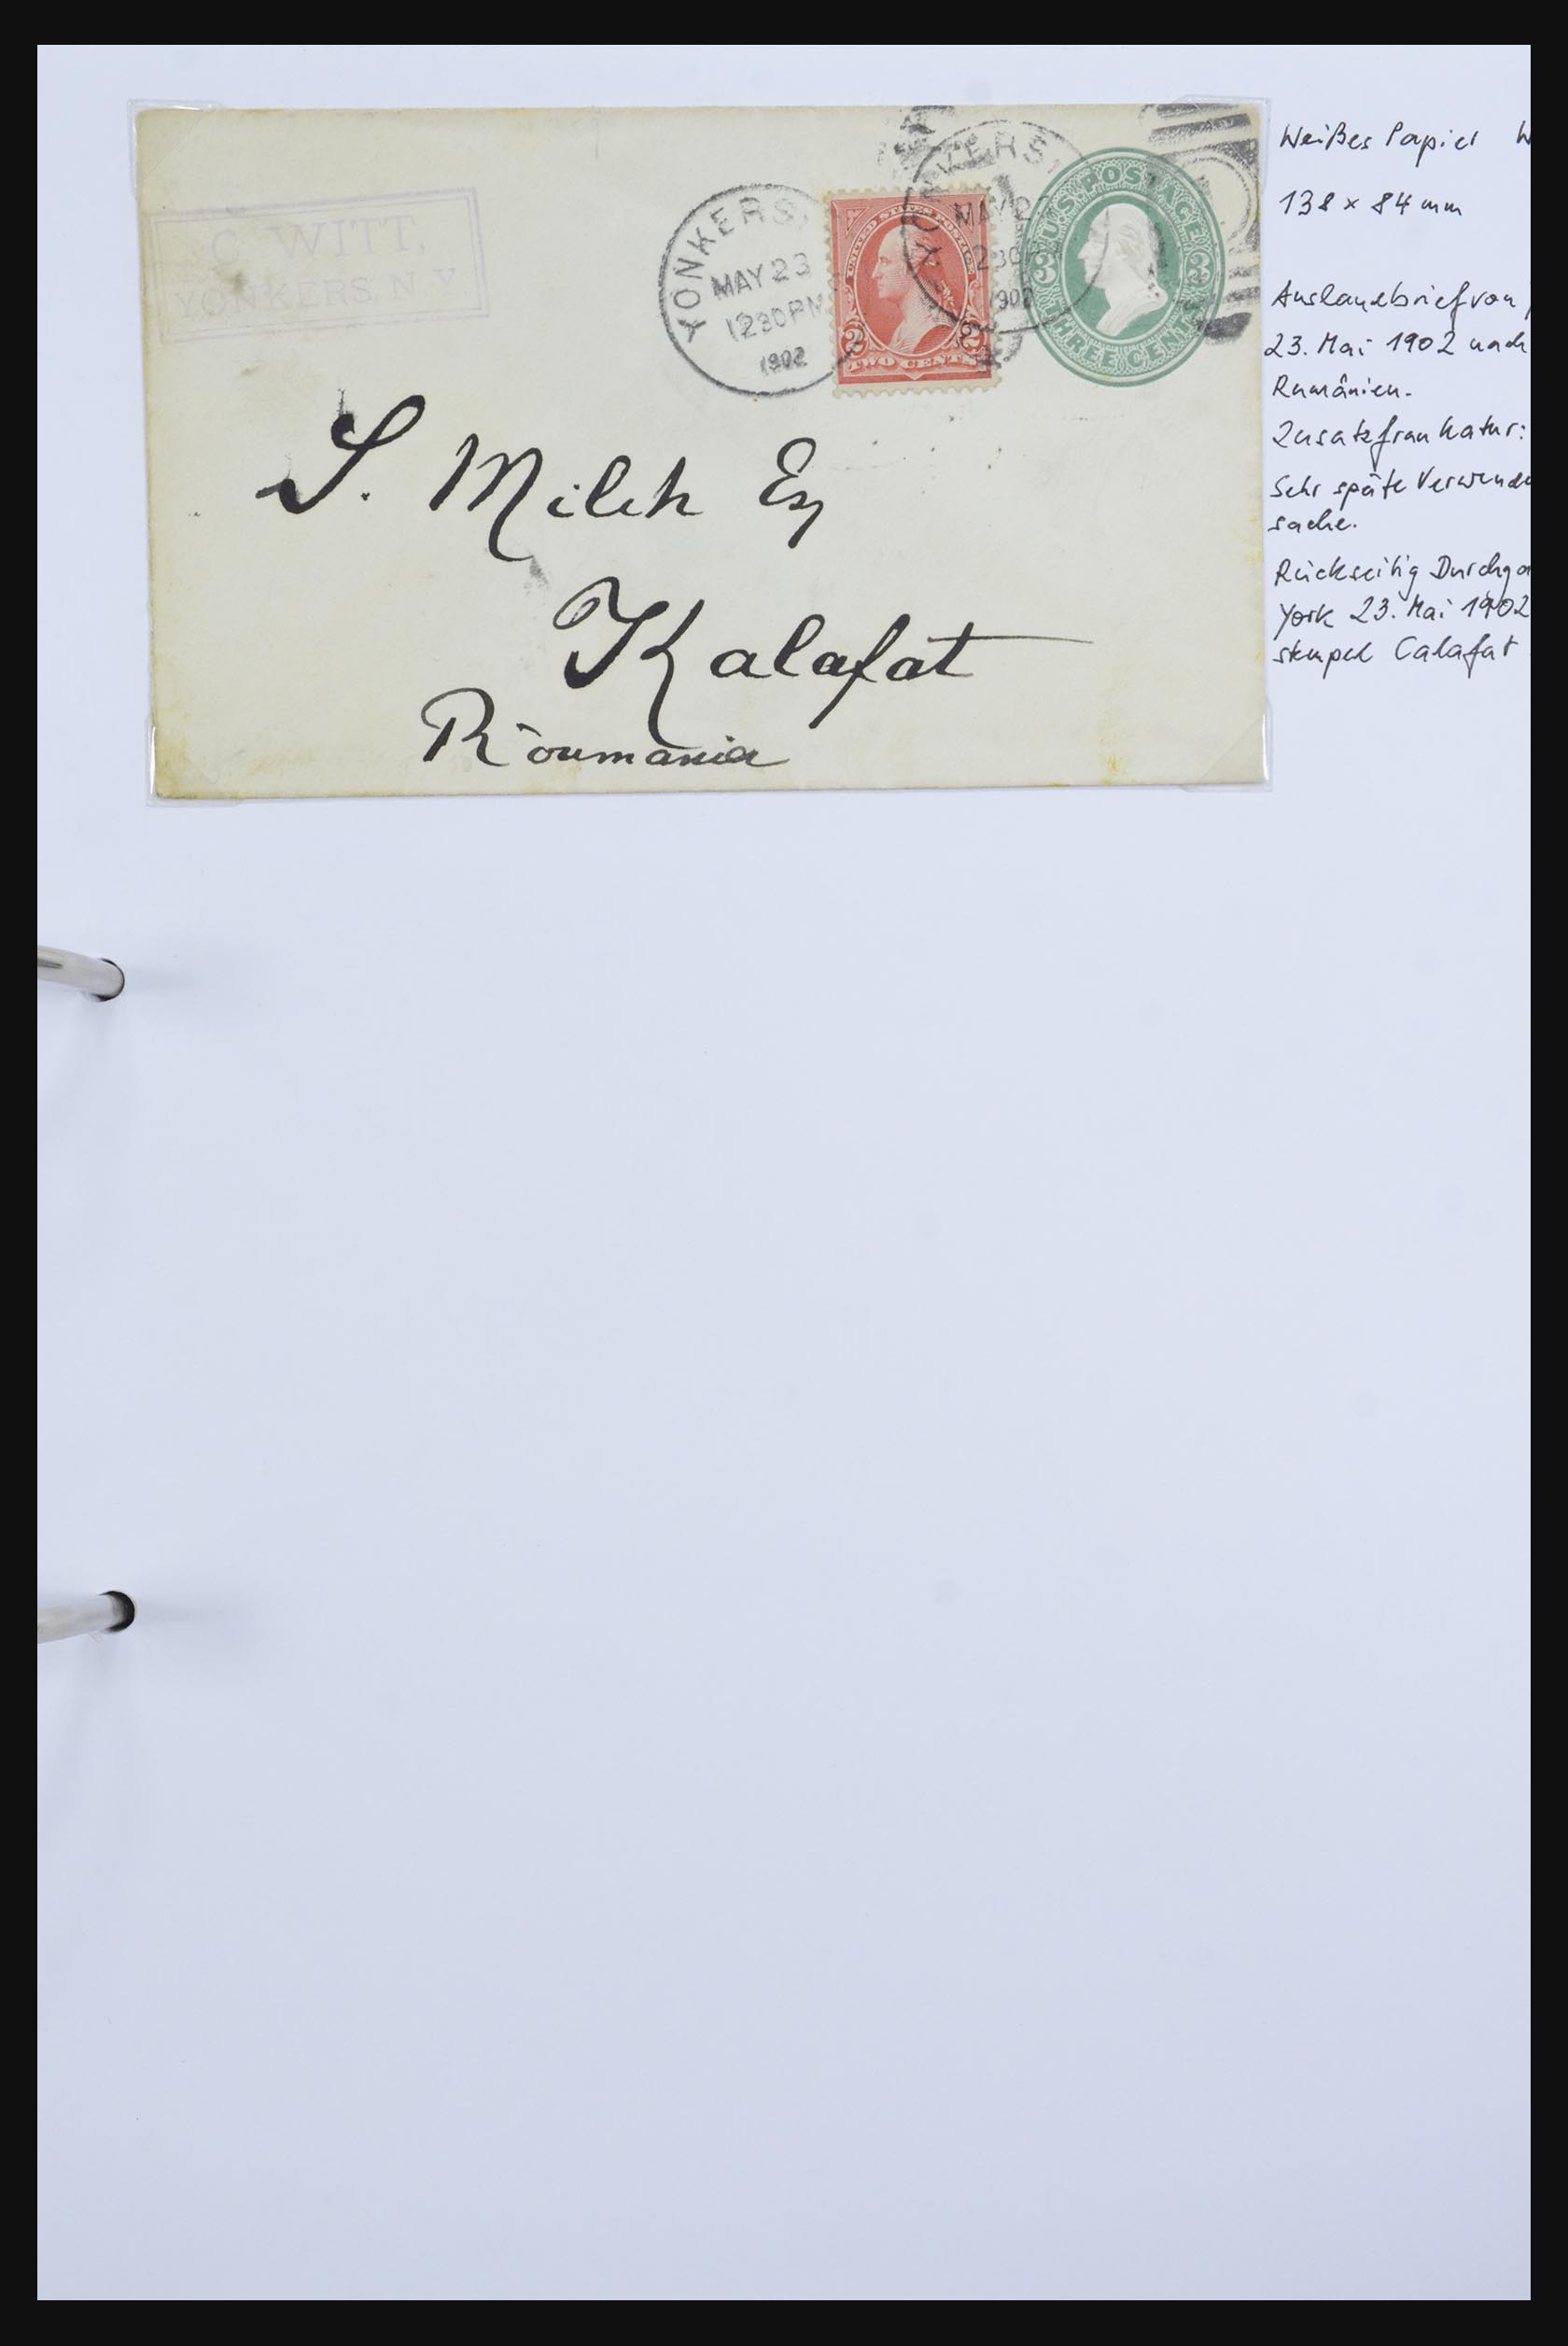 C. WITT,
YONKERS, N.Y.
YONKERS,
MAY 23
1230 PM
1902
UNITED STATES POSTAGE
2 2
TWO CENTS
YONKERS,
MAY 2
230
1902
U.S. POSTAGE
3 3
THREE CENTS
S. Milch Esq
Kalafat
Roumania
Weißes Papier W
138 x 84 mm
Auslandsbrief von
23. Mai 1902 nach
Rumänien.
Zusatzfrankatur:
Sehr späte Verwendu
sache.
Rückseitig Durchga
York 23. Mai 1902
stempel Calafat